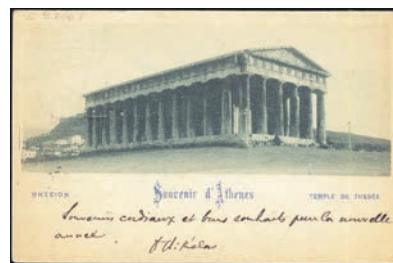 ΘΗΣΕΙΟΝ
Souvenir d'Athènes
TEMPLE DE THESÉE
Souvenirs cordiaux et bons souhaits pour la nouvelle
année.